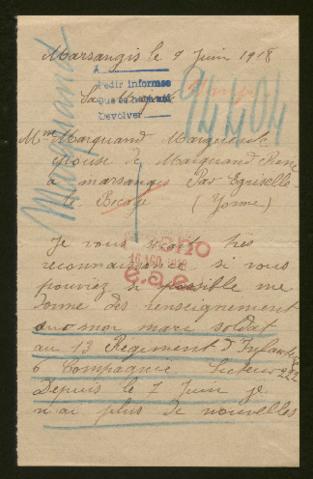 Marsangis le 9 Juin 1918
A
Pedir informes
Devolver
94404
Sa Majesté
Marquand
Mme Marquand Marguerite
épouse de Marquand René
a marsangis Par Egriselle
le Bocage (Yonne)
Je vous serais très
reconnaissance si vous
pouviez si possible me
donne des renseignement
sur mon mari soldat
au 13 Regiment d'Infanterie
6 Compagnie Secteur 222
Depuis le 7 Juin je
n'ai plus de nouvelles